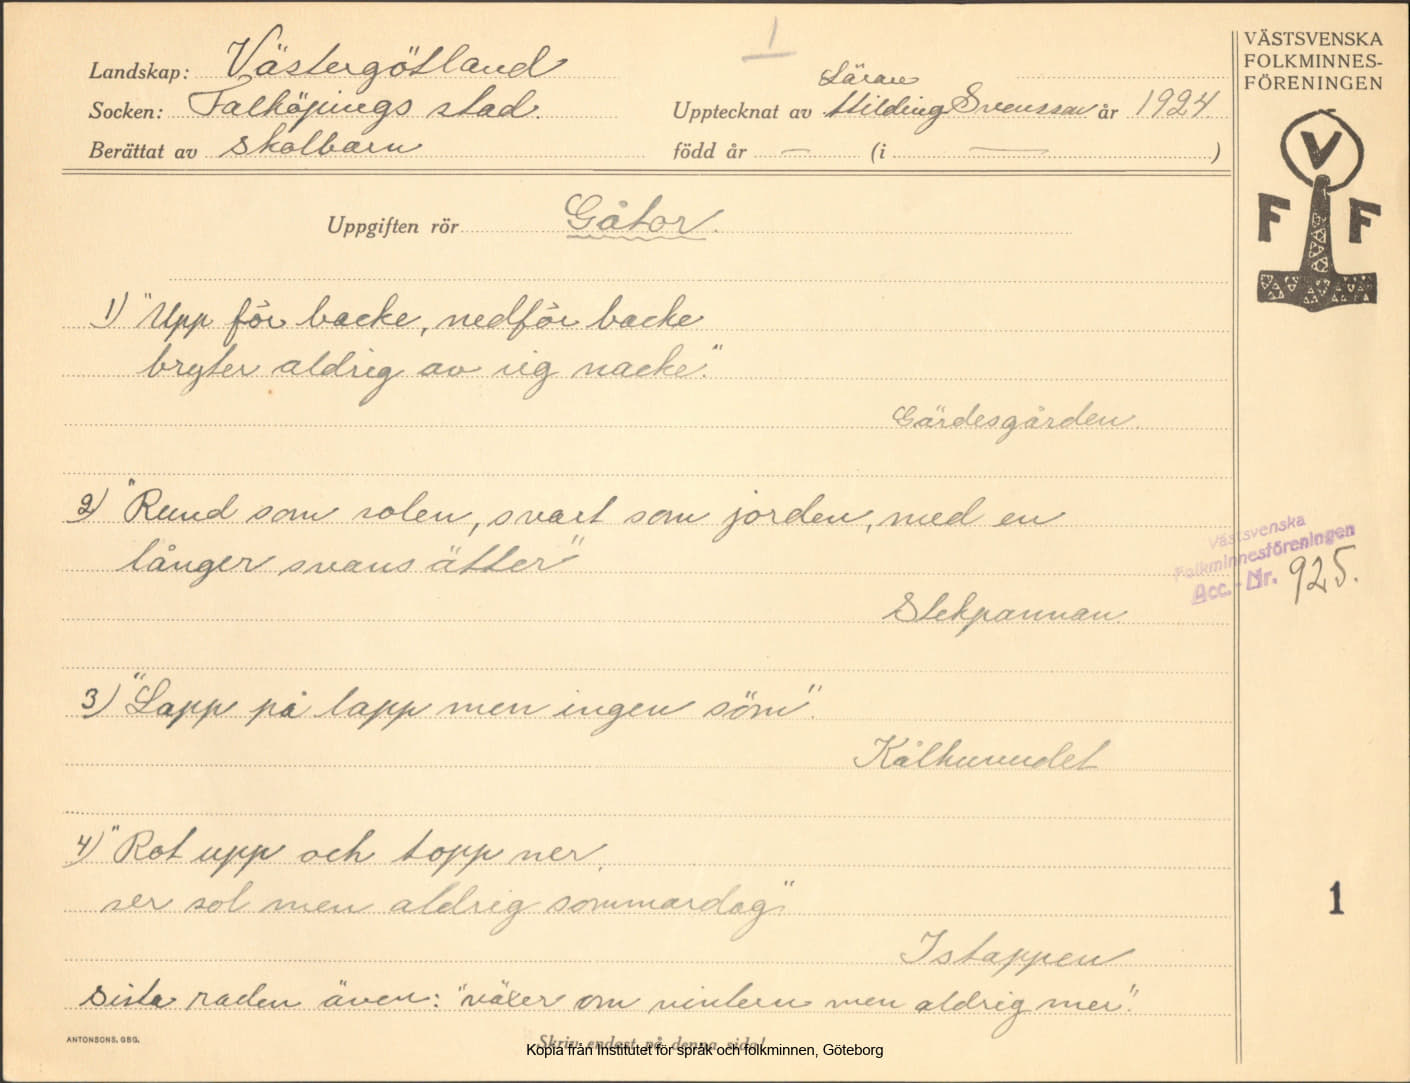 Landskap: Västergötland
Socken: Falköpings stad.
Berättat av Skolbarn
1
Upptecknat av Lärare Hilding Svensson år 1924.
född år — (i — )
VÄSTSVENSKA
FOLKMINNES-
FÖRENINGEN
V
F F
Uppgiften rör Gåtor.
1) "Upp för backe, nedför backe
bryter aldrig av sig nacke".
Gärdesgården.
2) "Rund som solen, svart som jorden, med en
långer svans ätter"
Stekpannan
Västsvenska
Folkminnesföreningen
Acc.-Nr. 925.
3) "Lapp på lapp men ingen söm".
Kålhuvudet
4) "Rot upp och topp ner,
ser sol men aldrig sommardag"
Istappen
1
Sista raden även: "växer om vintern men aldrig mer".
ANTONSONS. GBG.
Skriv endast på denna sida!
Kopia från Institutet för språk och folkminnen, Göteborg